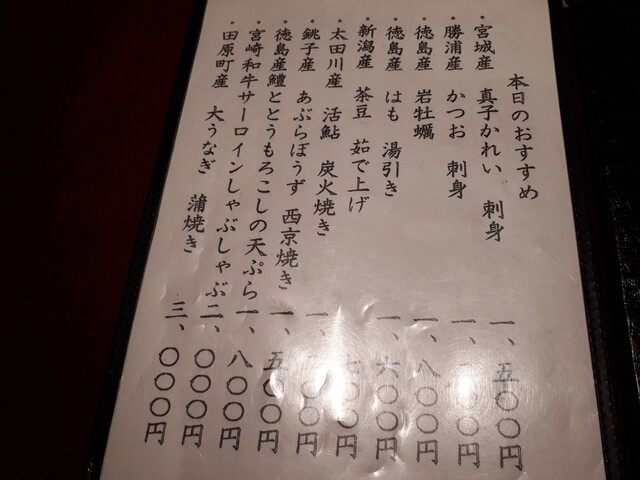 本日のおすすめ
・宮城産 真子かれい 刺身 一、五〇〇円
・勝浦産 かつお 刺身 一、〇〇円
・徳島産 岩牡蠣 一、八〇〇円
・徳島産 はも 湯引き 一、六〇〇円
・新潟産 茶豆 茹で上げ 七〇〇円
・太田川産 活鮎 炭火焼き 一、〇〇円
・銚子産 あぶらぼうず 西京焼き 一、五〇〇円
・徳島産鱧ととうもろこしの天ぷら 一、八〇〇円
・宮崎和牛サーロインしゃぶしゃぶ 二、〇〇〇円
・田原町産 大うなぎ 蒲焼き 三、〇〇〇円